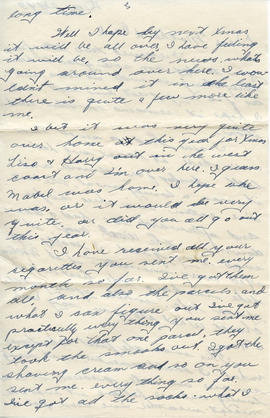 3
long time.
Well I hope by next Xmas
it will be all over, I have feeling
it will be, so the news, whats
going around over here. I wou
ldnt mined it in the least
there is quite a few more like
me.
I bet it was very quite
over home at this year for Xmas
& Harry out in the west
coast and Im over here. I guess
Mabel was home. I hope she
was, or it would be very
quite, or did you all go out
this year.
I have received all your
cigarettes, you sent me, every
month so far. I've got them
all, and also the parcels and
what I can figure out I've got
practically every thing you sent me
except for that one parcel, they
took the smooks out. I got the
shaving cream and so on you
sent me. everything so far.
I've got all the socks. what I